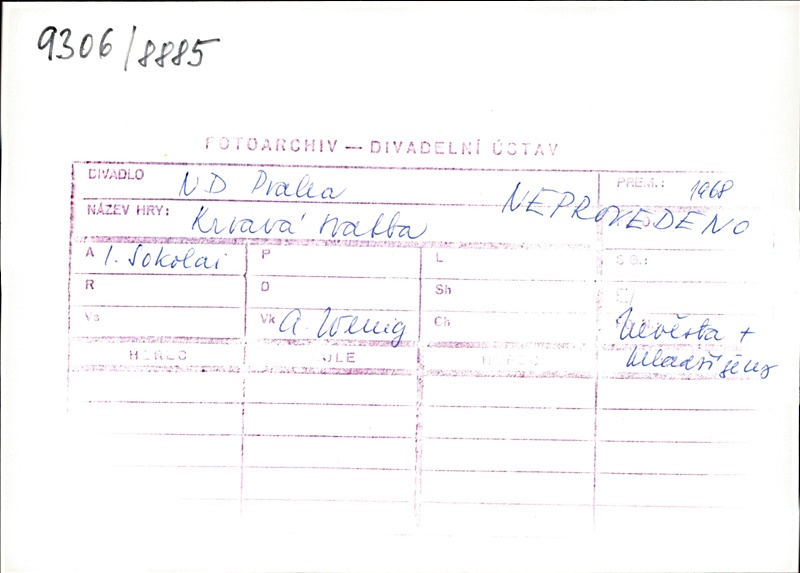 9306/8885
FOTOARCHIV — DIVADELNÍ ÚSTAV
DIVADLO ND Praha PREM.: 1968
NEPROVEDENO
NÁZEV HRY: Krvavá svatba
A I. Sokolai P L
R O Sh
Vs Vk A. Wenig Ch
Nevěsta +
mladší ženy
HEREC ROLE HEREC